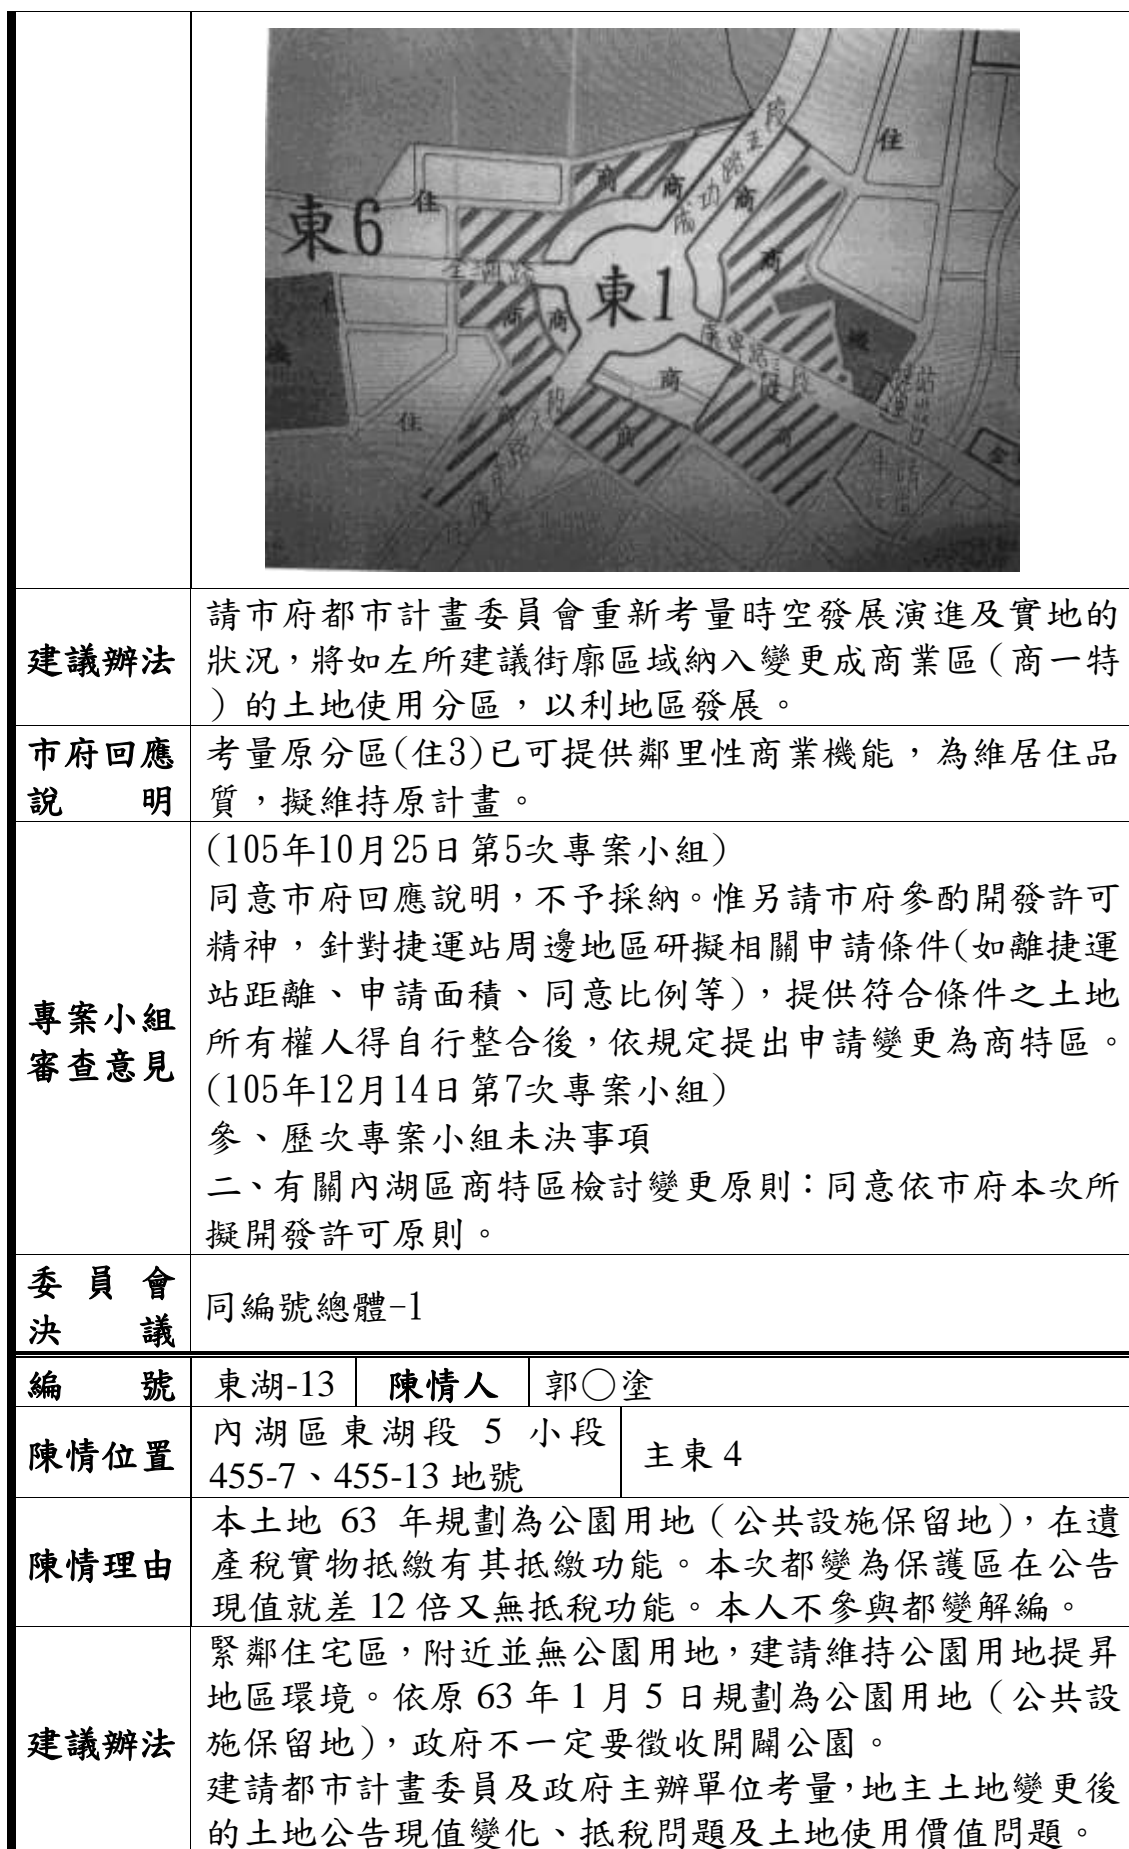 住
成功路五段
商
商
商
住
東6
商
東1
商
商
商
住
商
商
商
建議辦法
請市府都市計畫委員會重新考量時空發展演進及實地的
狀況，將如左所建議街廓區域納入變更成商業區（商一特
）的土地使用分區，以利地區發展。
市府回應
說　　明
考量原分區(住3)已可提供鄰里性商業機能，為維居住品
質，擬維持原計畫。
專案小組
審查意見
(105年10月25日第5次專案小組)
同意市府回應說明，不予採納。惟另請市府參酌開發許可
精神，針對捷運站周邊地區研擬相關申請條件(如離捷運
站距離、申請面積、同意比例等)，提供符合條件之土地
所有權人得自行整合後，依規定提出申請變更為商特區。
(105年12月14日第7次專案小組)
參、歷次專案小組未決事項
二、有關內湖區商特區檢討變更原則：同意依市府本次所
擬開發許可原則。
委員會
決　議
同編號總體-1
編　號
東湖-13
陳情人
郭○塗
陳情位置
內湖區東湖段 5 小段
455-7、455-13 地號
主東 4
陳情理由
本土地 63 年規劃為公園用地（公共設施保留地），在遺
產稅實物抵繳有其抵繳功能。本次都變為保護區在公告
現值就差 12 倍又無抵稅功能。本人不參與都變解編。
建議辦法
緊鄰住宅區，附近並無公園用地，建請維持公園用地提昇
地區環境。依原 63 年 1 月 5 日規劃為公園用地（公共設
施保留地），政府不一定要徵收開闢公園。
建請都市計畫委員及政府主辦單位考量，地主土地變更後
的土地公告現值變化、抵稅問題及土地使用價值問題。